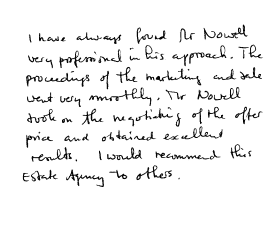 I have always found Mr Nowell
very professional in his approach. The
proceedings of the marketing and sale
went very smoothly. Mr Nowell
took on the negotiating of the offer
price and obtained excellent
results. I would recommend this
Estate Agency to others.